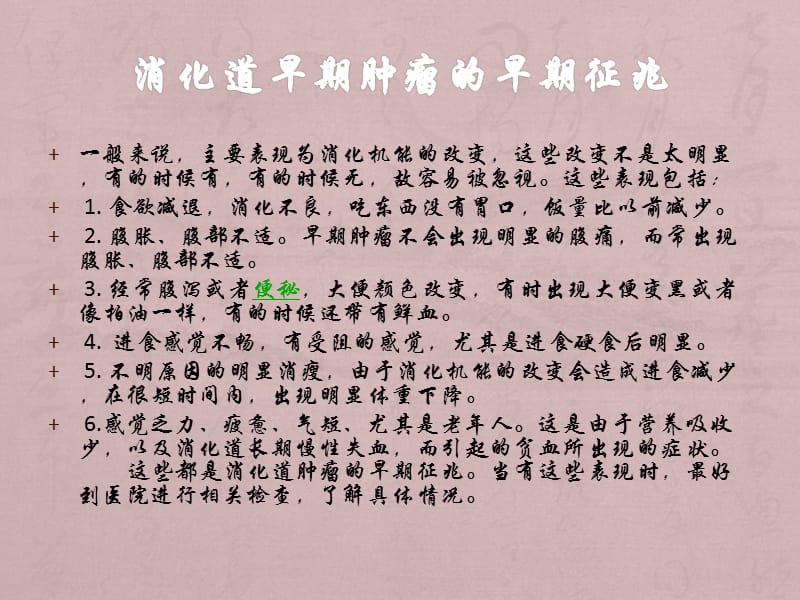 消化道早期肿瘤的早期征兆
一般来说，主要表现为消化机能的改变，这些改变不是太明显
，有的时候有，有的时候无，故容易被忽视。这些表现包括：
1. 食欲减退，消化不良，吃东西没有胃口，饭量比以前减少。
2. 腹胀、腹部不适。早期肿瘤不会出现明显的腹痛，而常出现
腹胀、腹部不适。
3. 经常腹泻或者便秘，大便颜色改变，有时出现大便变黑或者
像柏油一样，有的时候还带有鲜血。
4. 进食感觉不畅，有受阻的感觉，尤其是进食硬食后明显。
5. 不明原因的明显消瘦，由于消化机能的改变会造成进食减少
，在很短时间内，出现明显体重下降。
6.感觉乏力、疲惫、气短、尤其是老年人。这是由于营养吸收
少，以及消化道长期慢性失血，而引起的贫血所出现的症状。
这些都是消化道肿瘤的早期征兆。当有这些表现时，最好
到医院进行相关检查，了解具体情况。